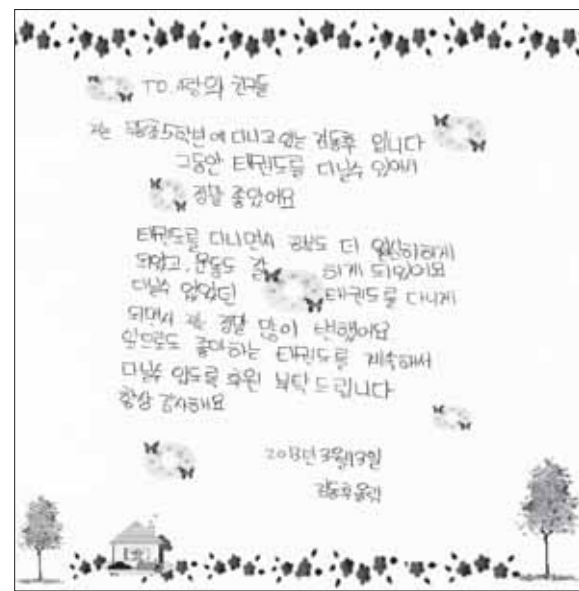 TO. 사랑의 친구들
저는 초등학교 5학년에 다니고 있는 김동후 입니다
그동안 태권도를 다닐수 있어서
정말 좋았어요
태권도를 다니면서 공부도 더 열심히하게
되었고, 운동도 잘 하게 되었어요
다닐수 없었던 태권도를 다니게
되면서 저는 정말 많이 변했어요
앞으로도 좋아하는 태권도를 계속해서
다닐수 있도록 후원 부탁드립니다
항상 감사해요
2013년 3월 13일
김동후 올림